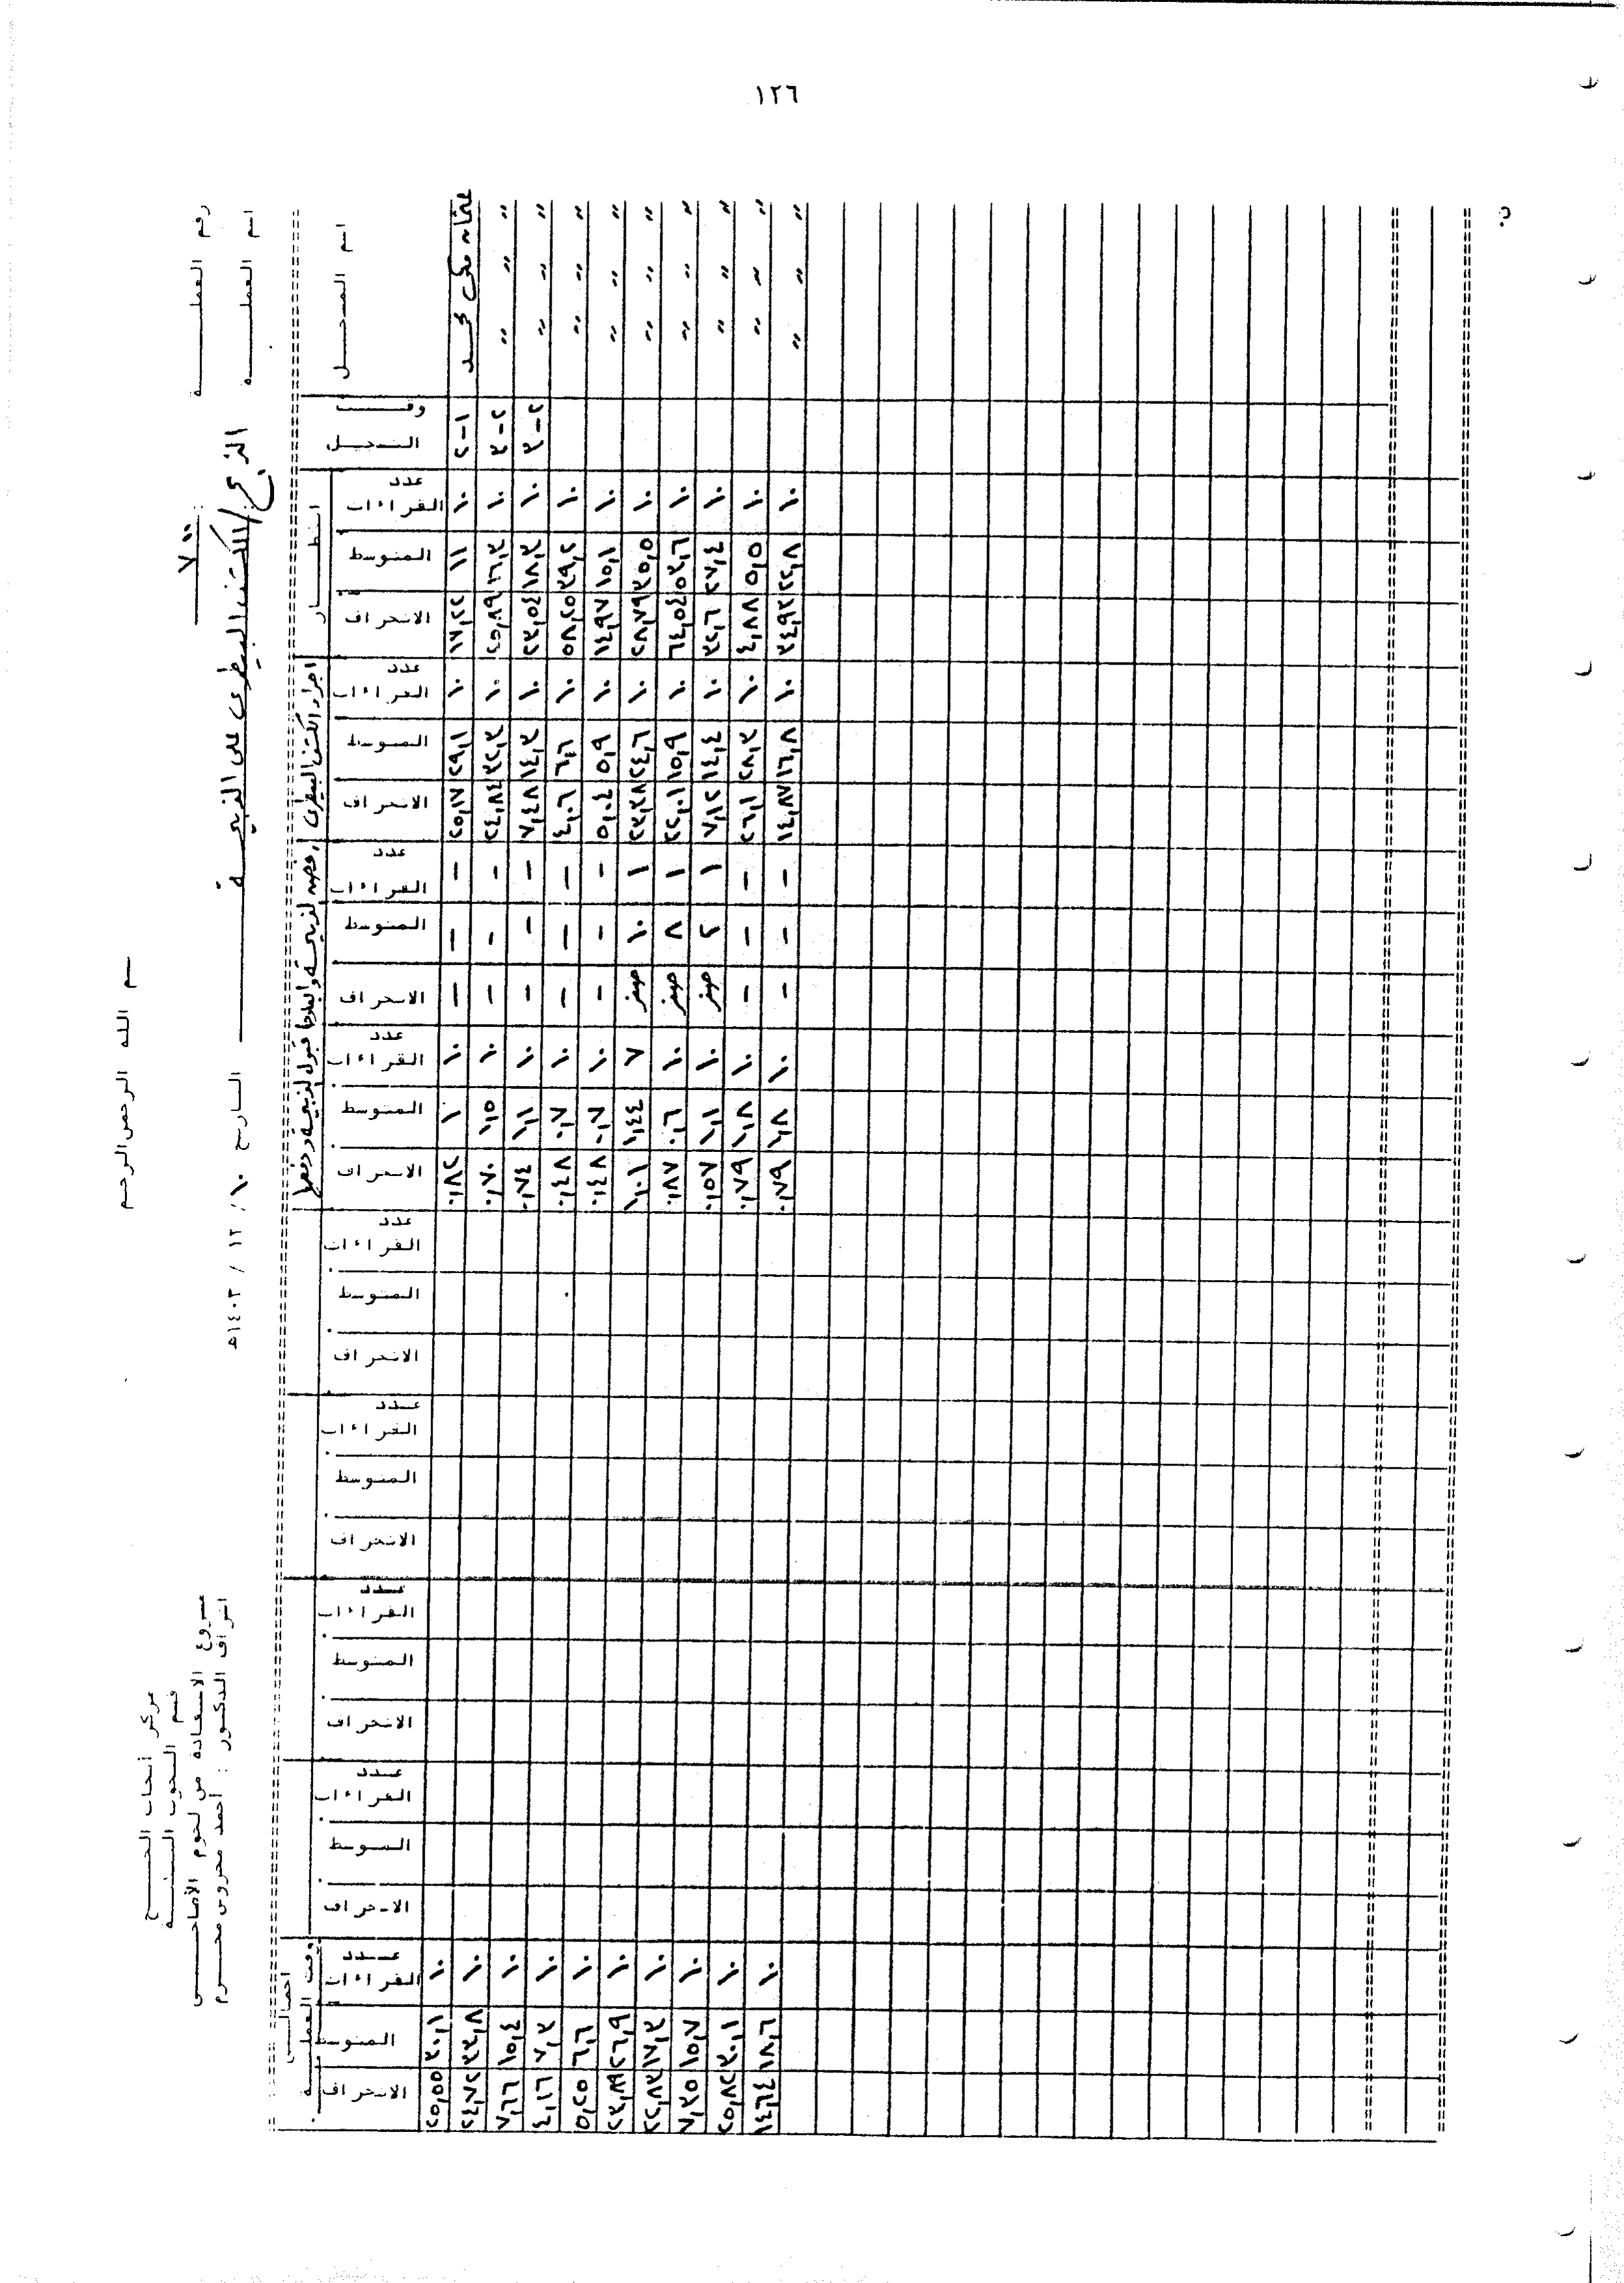 ١٢٦
بسم الله الرحمن الرحيم
مركز أبحاث الحج
قسم البحوث البيئية
مشروع الاستفادة من لحوم الأضاحي
اشراف الدكتور : أحمد محروس محروم
التاريخ ١٠ / ١٢ / ١٤٠٣هـ
رقم العملية ٧٠٠
اسم العملية الذبح / الكشف البيطرى على الذبيحة
اسم المسجل
وقت التسجيل
انتظار
اجراء الكشف البيطرى
قبول الذبيحة ورفضها
اجمالى وقت العملية
عدد القراءات المتوسط الانحراف
عدد القراءات المتوسط الانحراف
عدد القراءات المتوسط الانحراف
عدد القراءات المتوسط الانحراف
عدد القراءات المتوسط الانحراف
عدد القراءات المتوسط الانحراف
عدد القراءات المتوسط الانحراف
عدد القراءات المتوسط الانحراف
عدد القراءات المتوسط الانحراف
عثمان مكى محمد ١-٢ ١٠ ١١ ١٧,٢٢ ١٠ ٢٩,١ ٢٥,١٧ - - - ١٠ ١ ٠,٨٢ ١٠ ٣٠,١ ٢٥,٥٥
" " " ٢-٣ ١٠ ١٦,٣ ٢٥,٨٩ ١٠ ٣٢,٣ ٢٤,٨٤ - - - ١٠ ١,٥ ٠,٧٠ ١٠ ٣٣,٨ ٢٤,٧٢
" " " ٢-٣ ١٠ ١٨,٣ ٢٣,٥٤ ١٠ ١٤,٣ ٧,٤٨ - - - ١٠ ١,١ ٠,٧٤ ١٠ ١٥,٤ ٧,٦٦
" " " ١٠ ٣٩,٢ ٥٨,٢٥ ١٠ ٦,٦ ٤,٠٦ - - - ١٠ ٠,٧ ٠,٤٨ ١٠ ٧,٣ ٤,١٦
" " " ١٠ ١٥,١ ١٤,٩٧ ١٠ ٥,٩ ٥,٠٤ - - - ١٠ ٠,٧ ٠,٤٨ ١٠ ٦,٦ ٥,٢٥
" " " ١٠ ٣٥,٥ ٢٨,٧٩ ١٠ ٢٤,٦ ٢٣,٣٨ ١ ١٠ صفر ٧ ١,٤٤ ١,٠١ ١٠ ٢٦,٩ ٢٣,٨٩
" " " ١٠ ٥٣,٦ ٦٤,٥٤ ١٠ ١٥,٩ ٢٢,٠١ ١ ٨ صفر ١٠ ٠,٦ ٠,٨٧ ١٠ ١٧,٣ ٢٢,٨٣
" " " ١٠ ٢٧,٤ ٣٢,٦ ١٠ ١٤,٤ ٧,١٢ ١ ٢ صفر ١٠ ١,١ ٠,٥٧ ١٠ ١٥,٧ ٧,٣٥
" " " ١٠ ٥,٥ ٤,٨٨ ١٠ ٢٨,٣ ٢٦,١ - - - ١٠ ١,٨ ٠,٧٩ ١٠ ٣٠,١ ٢٥,٨٢
" " " ١٠ ٢٢,٨ ٣٤,٩٢ ١٠ ١٦,٨ ١٤,٨٧ - - - ١٠ ١,٨ ٠,٧٩ ١٠ ١٨,٦ ١٤,٦٤